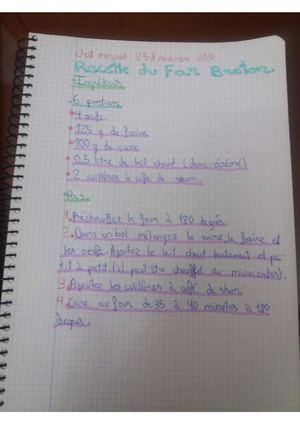 25 Novembre 2020
Recette du Far Breton.
Ingrédients
6 portions
4 oeufs
125 g de farine
100 g de sucre
0,5 litre de lait chaud (demi-écrémé)
2 cuillères à café de rhum.
1. Préchauffez le four à 180 degrés
2. Dans un bol mélangez le sucre, la farine et
les oeufs. Ajoutez le lait chaud lentement et pe-
tit à petit (il peut être chauffé au microondes).
3. Ajoutez les cuillères à café de rhum.
4. Cuire au four de 35 à 40 minutes à 180
degrés.